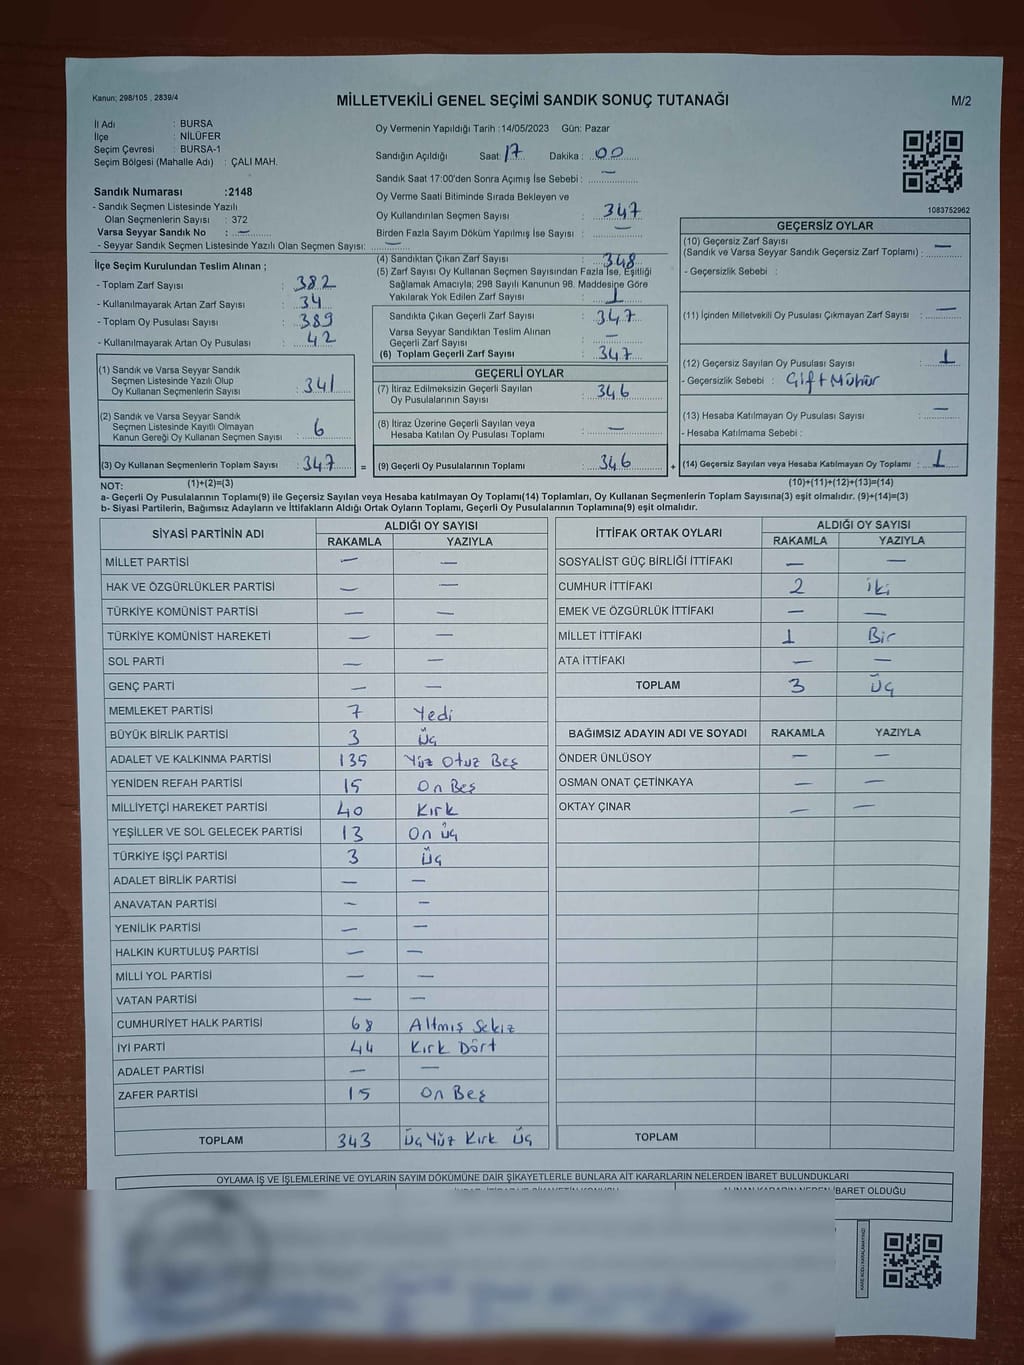 Kanun: 298/105 , 2839/4
MİLLETVEKİLİ GENEL SEÇİMİ SANDIK SONUÇ TUTANAĞI
M/2
İl Adı : BURSA
İlçe : NİLÜFER
Seçim Çevresi : BURSA-1
Seçim Bölgesi (Mahalle Adı) : ÇALI MAH.
Sandık Numarası :2148
- Sandık Seçmen Listesinde Yazılı
Olan Seçmenlerin Sayısı : 372
Varsa Seyyar Sandık No : —
- Seyyar Sandık Seçmen Listesinde Yazılı Olan Seçmen Sayısı: —
İlçe Seçim Kurulundan Teslim Alınan ;
- Toplam Zarf Sayısı : 382
- Kullanılmayarak Artan Zarf Sayısı : 34
- Toplam Oy Pusulası Sayısı : 389
- Kullanılmayarak Artan Oy Pusulası : 42
(1) Sandık ve Varsa Seyyar Sandık
Seçmen Listesinde Yazılı Olup
Oy Kullanan Seçmenlerin Sayısı : 341
(2) Sandık ve Varsa Seyyar Sandık
Seçmen Listesinde Kayıtlı Olmayan
Kanun Gereği Oy Kullanan Seçmen Sayısı : 6
(3) Oy Kullanan Seçmenlerin Toplam Sayısı : 347
Oy Vermenin Yapıldığı Tarih :14/05/2023 Gün: Pazar
Sandığın Açıldığı Saat: 17 Dakika : 00
Sandık Saat 17:00'den Sonra Açımış İse Sebebi : —
Oy Verme Saati Bitiminde Sırada Bekleyen ve
Oy Kullandırılan Seçmen Sayısı : 347
Birden Fazla Sayım Döküm Yapılmış İse Sayısı : —
(4) Sandıktan Çıkan Zarf Sayısı : 348
(5) Zarf Sayısı Oy Kullanan Seçmen Sayısından Fazla İse, Eşitliği
Sağlamak Amacıyla; 298 Sayılı Kanunun 98. Maddesine Göre
Yakılarak Yok Edilen Zarf Sayısı : 1
Sandıkta Çıkan Geçerli Zarf Sayısı : 347
Varsa Seyyar Sandıktan Teslim Alınan
Geçerli Zarf Sayısı : —
(6) Toplam Geçerli Zarf Sayısı : 347
GEÇERLİ OYLAR
(7) İtiraz Edilmeksizin Geçerli Sayılan
Oy Pusulalarının Sayısı : 346
(8) İtiraz Üzerine Geçerli Sayılan veya
Hesaba Katılan Oy Pusulası Toplamı : —
= (9) Geçerli Oy Pusulalarının Toplamı : 346 +
1083752962
GEÇERSİZ OYLAR
(10) Geçersiz Zarf Sayısı
(Sandık ve Varsa Seyyar Sandık Geçersiz Zarf Toplamı) : —
- Geçersizlik Sebebi :
(11) İçinden Milletvekili Oy Pusulası Çıkmayan Zarf Sayısı : —
(12) Geçersiz Sayılan Oy Pusulası Sayısı : 1
- Geçersizlik Sebebi : Çift Mühür
(13) Hesaba Katılmayan Oy Pusulası Sayısı : —
- Hesaba Katılmama Sebebi :
(14) Geçersiz Sayılan veya Hesaba Katılmayan Oy Toplamı : 1
NOT: (1)+(2)=(3) (10)+(11)+(12)+(13)=(14)
a- Geçerli Oy Pusulalarının Toplamı(9) ile Geçersiz Sayılan veya Hesaba katılmayan Oy Toplamı(14) Toplamları, Oy Kullanan Seçmenlerin Toplam Sayısına(3) eşit olmalıdır. (9)+(14)=(3)
b- Siyasi Partilerin, Bağımsız Adayların ve İttifakların Aldığı Ortak Oyların Toplamı, Geçerli Oy Pusulalarının Toplamına(9) eşit olmalıdır.
SİYASİ PARTİNİN ADI ALDIĞI OY SAYISI
RAKAMLA YAZIYLA
MİLLET PARTİSİ — —
HAK VE ÖZGÜRLÜKLER PARTİSİ — —
TÜRKİYE KOMÜNİST PARTİSİ — —
TÜRKİYE KOMÜNİST HAREKETİ — —
SOL PARTİ — —
GENÇ PARTİ — —
MEMLEKET PARTİSİ 7 Yedi
BÜYÜK BİRLİK PARTİSİ 3 Üç
ADALET VE KALKINMA PARTİSİ 135 Yüz Otuz Beş
YENİDEN REFAH PARTİSİ 15 On Beş
MİLLİYETÇİ HAREKET PARTİSİ 40 Kırk
YEŞİLLER VE SOL GELECEK PARTİSİ 13 On üç
TÜRKİYE İŞÇİ PARTİSİ 3 Üç
ADALET BİRLİK PARTİSİ — —
ANAVATAN PARTİSİ — —
YENİLİK PARTİSİ — —
HALKIN KURTULUŞ PARTİSİ — —
MİLLİ YOL PARTİSİ — —
VATAN PARTİSİ — —
CUMHURİYET HALK PARTİSİ 68 Altmış Sekiz
İYİ PARTİ 44 Kırk Dört
ADALET PARTİSİ — —
ZAFER PARTİSİ 15 On Beş
TOPLAM 343 Üç Yüz Kırk Üç
İTTİFAK ORTAK OYLARI ALDIĞI OY SAYISI
RAKAMLA YAZIYLA
SOSYALİST GÜÇ BİRLİĞİ İTTİFAKI — —
CUMHUR İTTİFAKI 2 iki
EMEK VE ÖZGÜRLÜK İTTİFAKI — —
MİLLET İTTİFAKI 1 Bir
ATA İTTİFAKI — —
TOPLAM 3 Üç
BAĞIMSIZ ADAYIN ADI VE SOYADI RAKAMLA YAZIYLA
ÖNDER ÜNLÜSOY — —
OSMAN ONAT ÇETİNKAYA — —
OKTAY ÇINAR — —
TOPLAM
OYLAMA İŞ VE İŞLEMLERİNE VE OYLARIN SAYIM DÖKÜMÜNE DAİR ŞİKAYETLERLE BUNLARA AİT KARARLARIN NELERDEN İBARET BULUNDUKLARI
ALINAN KARARIN NEDEN İBARET OLDUĞU